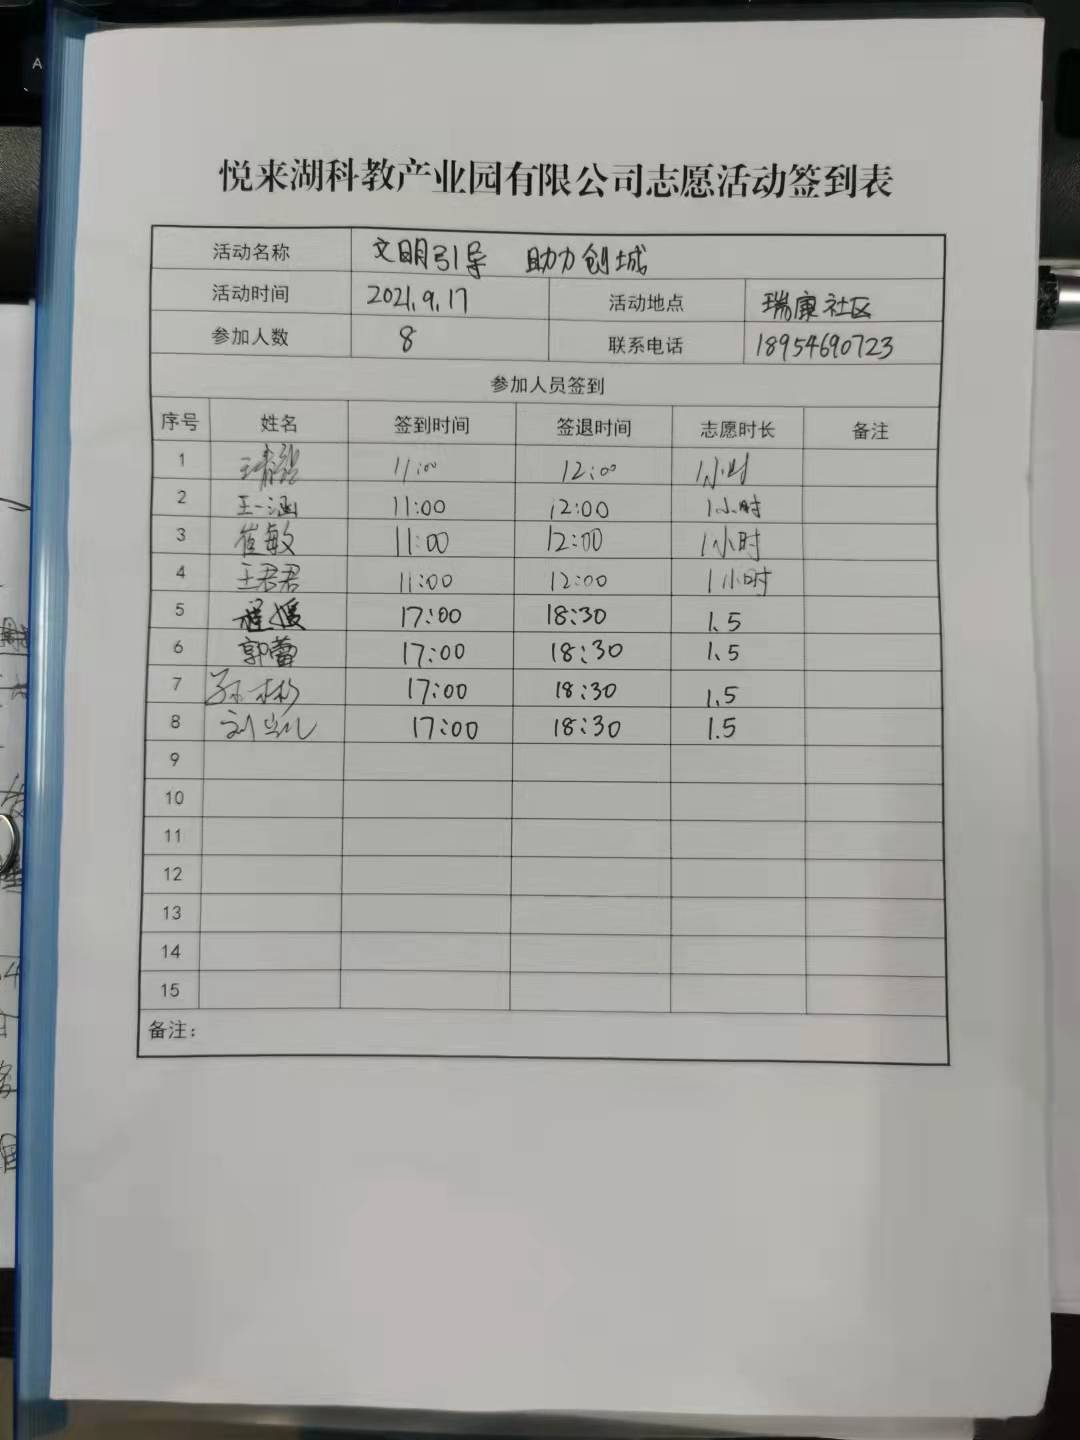 悦来湖科教产业园有限公司志愿活动签到表
活动名称 文明引导 助力创城
活动时间 2021.9.17 活动地点 瑞康社区
参加人数 8 联系电话 18954690723
参加人员签到
序号 姓名 签到时间 签退时间 志愿时长 备注
1 11:00 12:00 1小时
2 王一涵 11:00 12:00 1小时
3 崔敏 11:00 12:00 1小时
4 王君君 11:00 12:00 1小时
5 程媛 17:00 18:30 1.5
6 郭蕾 17:00 18:30 1.5
7 孙彬 17:00 18:30 1.5
8 刘凯 17:00 18:30 1.5
9
10
11
12
13
14
15
备注：